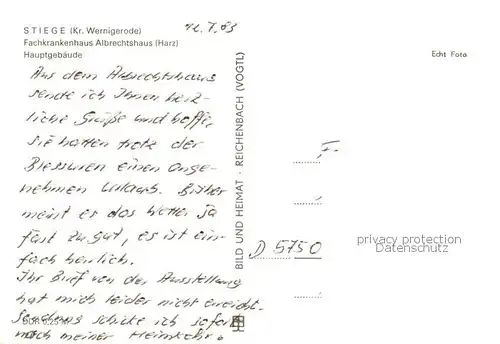 12.7.83
STIEGE (Kr. Wernigerode)
Fachkrankenhaus Albrechtshaus (Harz)
Hauptgebäude
Echt Foto
Aus dem Albrechtshaus
sende ich Ihnen herz-
liche Grüße und hoffe,
sie hatten trotz der
Blessuren einen ange-
nehmen Urlaub. Bisher
meint es das Wetter ja
fast zu gut, es ist ein-
fach herrlich.
Ihr Brief von der Ausstellung
hat mich leider nicht erreicht.
schicke ich sofort
nach meiner Heimkehr.
DDR 0,25 M
BILD UND HEIMAT · REICHENBACH (VOGTL)
F.
D 5750
privacy protection
Datenschutz